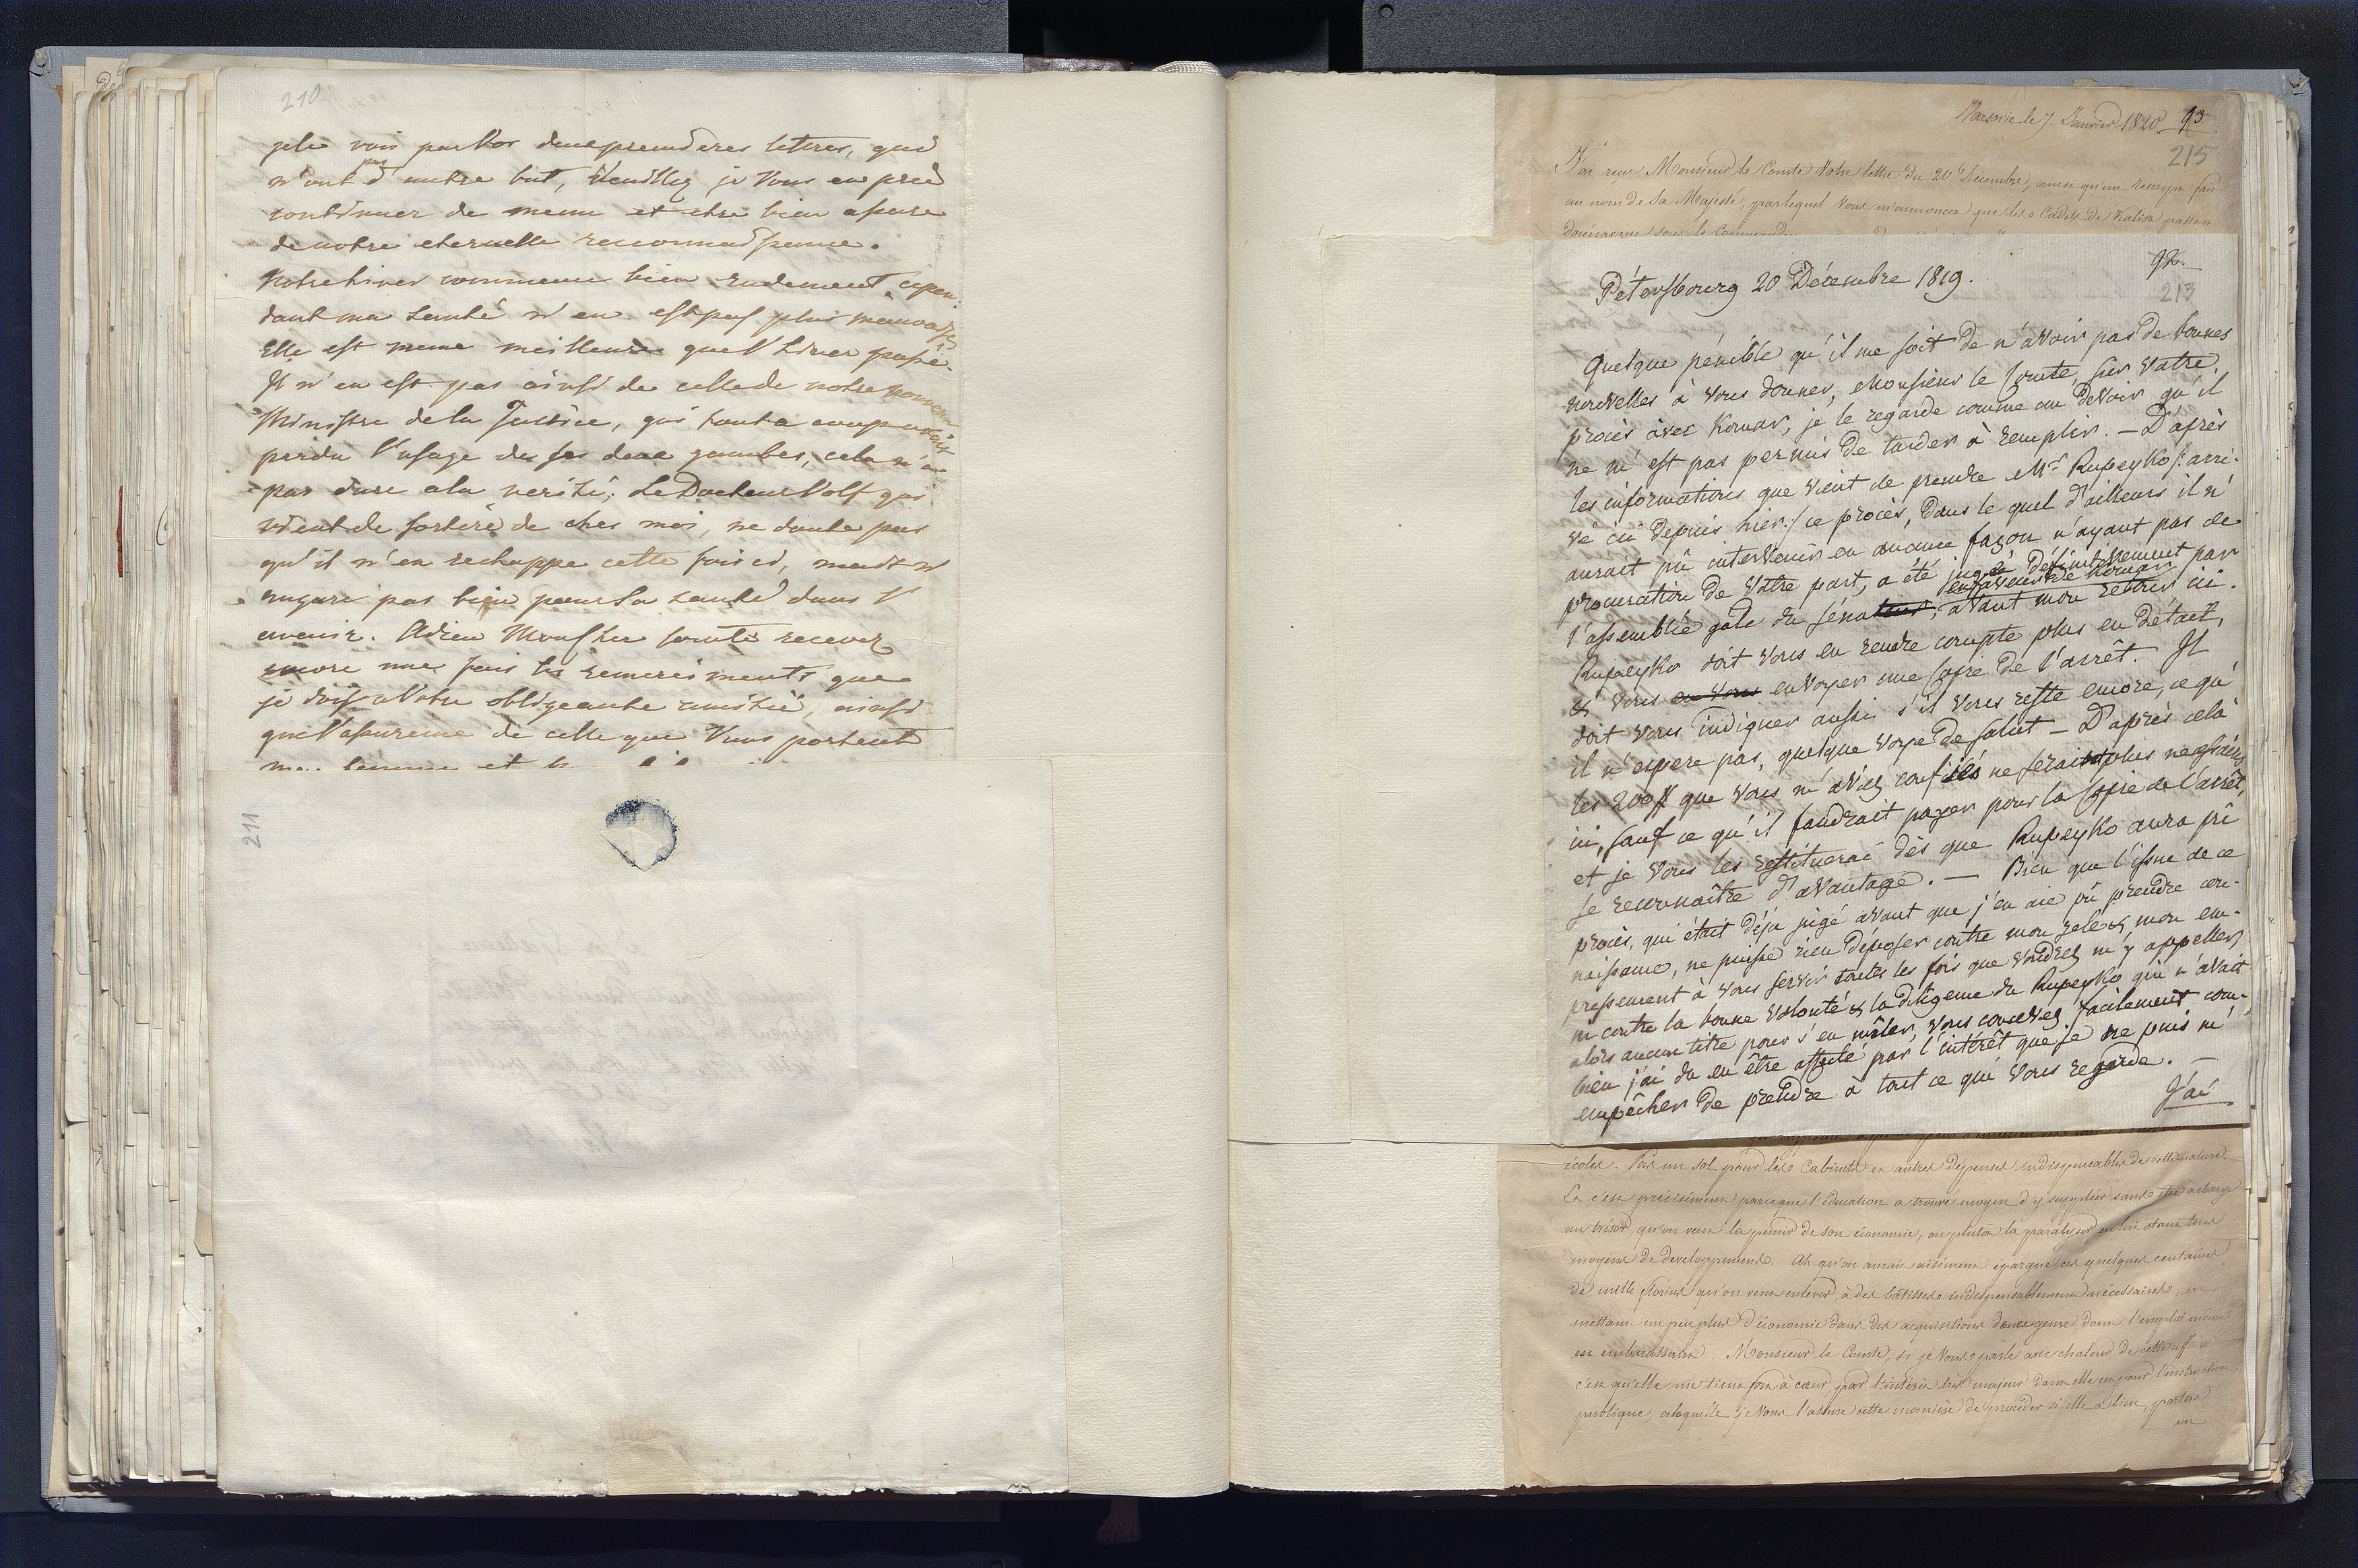 210
je le vois par Vos deux premieres lettres, qui
n'ont pas d'autre but, Veuillez je Vous en prie
continuer de meme et etre bien assure
de notre eternelle reconnaissance.
Notre hiver commence bien rudement, cepen-
dant ma santé n'en est pas plus mauvaise
Elle est meme meilleure que l'hiver passé.
Il n'en est pas ainsi de celle de notre
Ministre de la Justice, qui tout a coup avait
perdu l'usage de ses deux jambes, cela n'a
pas duré a la verité; Le Docteur Volf qui
vient de sortir de ches moi, ne doute pas
qu'il n'en rechappe cette fois ci, mais n'
augure pas bien pour sa santé dans l'
avenir. Adieu Mon cher Comte recevez
encore une fois les remerciments que
je dois a Votre obligeante amitié, ainsi
que l'assurence de celle que Vous portent
ma femme et
211
Varsovie le 7. Janvier 1820. 93.
215
J'ai reçu Monsieur le Comte Votre lettre du 20 Decembre, ainsi qu'un rescript fait
au nom de Sa Majesté, par lequel Vous m'annoncez que les Cadets de Kalisz passent
dorénavant sous le Commande
92.
213
Pétersbourg 20 Décembre 1819.
Quelque pénible qu'il me soit de n'avoir pas de bonnes
nouvelles à vous donner, Monsieur le Comte, sur Votre
procès avec Komar, je le regarde comme un devoir qu'il
ne m'est pas permis de tarder à remplir. — D'après
les informations que vient de prendre Mr. Rupeyko /: arri-
vé ici depuis hier :/ ce procès, dans le quel d'ailleurs il n'
aurait pû intervenir en aucune façon n'ayant pas de
procuration de Votre part, a été jugé définitivement par
en faveur de Komar
l'assemblée gale du Sénat, avant mon retour ici.
Rupeyko doit vous en rendre compte plus en détail,
& vous en vous envoyer une copie de l'arrêt. Il
doit vous indiquer aussi s'il vous reste encore, ce qu'
il n'espere pas, quelque voye de salut — D'après celà
les 200# que vous m'aviez confiés ne serait plus necessaires
ici, sauf ce qu'il faudrait payer pour la copie de l'arrêt,
et je vous les restituerai dès que Rupeyko aura pû
se reconnaître d'avantage. — Bien que l'issue de ce
procès, qui était déja jugé avant que j'en aie pû prendre con-
naissance, ne puisse rien déposer contre mon zele & mon em-
pressement à vous servir toutes les fois que voudrez m'y appeller,
ni contre la bonne volonté & la diligence du Rupeyko qui n'avait
alors aucun titre pour s'en mêler, vous concevez facilement com-
bien j'ai du en être affecté par l'intérêt que je ne puis m'
empêcher de prendre à tout ce qui vous regarde. —
J'ai
écoles. Pas un sol pour les Cabinets et autres dépenses indispensables de cette nature.
Et c'est précisément parceque l'éducation a trouvé moyen d'y suppléer sans être à charge
au trésor, qu'on veut la punir de son économie, ou plutôt la paralyser en lui otant tous
moyens de developpement. Ah qu'on aurait aisément épargné ces quelques centaines
de mille florins qu'on veut enlever, à des bâtisses indispensablement nécessaires, en
mettant un peu plus d'économie dans des acquisitions dont l'emploi même
est embarassant. Monsieur le Comte, si je Vous parle avec chaleur de cette affaire
c'est qu'elle me tient fort à cœur, par l'intérêt très majeur dont elle est pour l'instruction
publique, à laquelle, je Vous l'assure cette manière de procéder si elle a lieu, portera
un